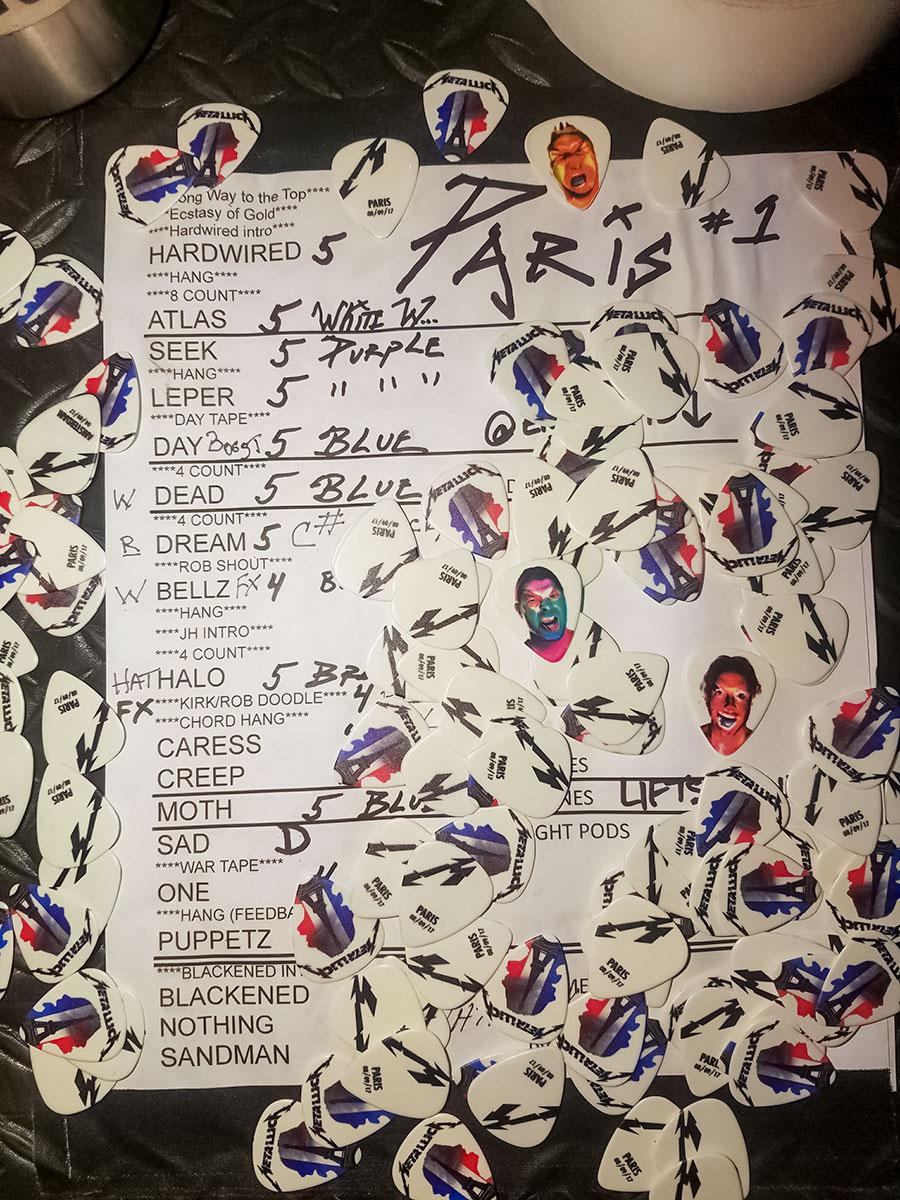 METALLICA
METALLICA
PARIS
08/09/17
PARIS
08/09/17
PARIS
08/09/17
ong Way to the Top****
Ecstasy of Gold****
****Hardwired intro****
PARIS #1
HARDWIRED 5
****HANG****
****8 COUNT****
ATLAS 5 WHITE W...
SEEK 5 PURPLE
****HANG****
LEPER 5 " " "
****DAY TAPE****
DAY 5 BLUE @
****4 COUNT****
W DEAD 5 BLUE
****4 COUNT****
R DREAM 5 C#
****ROB SHOUT****
W BELLZ FX 4 B
****HANG****
****JH INTRO****
****4 COUNT****
HAT HALO 5
FX ****KIRK/ROB DOODLE**** 4
****CHORD HANG****
CARESS
CREEP ES
MOTH 5 BLU NES LIFTS
SAD D GHT PODS
****WAR TAPE****
ONE
****HANG (FEEDBA
PUPPETZ
****BLACKENED IN
BLACKENED
NOTHING
SANDMAN
AMSTERDAM
PARIS
08/09/17
METALLICA
PARIS
08/09/17
METALLICA